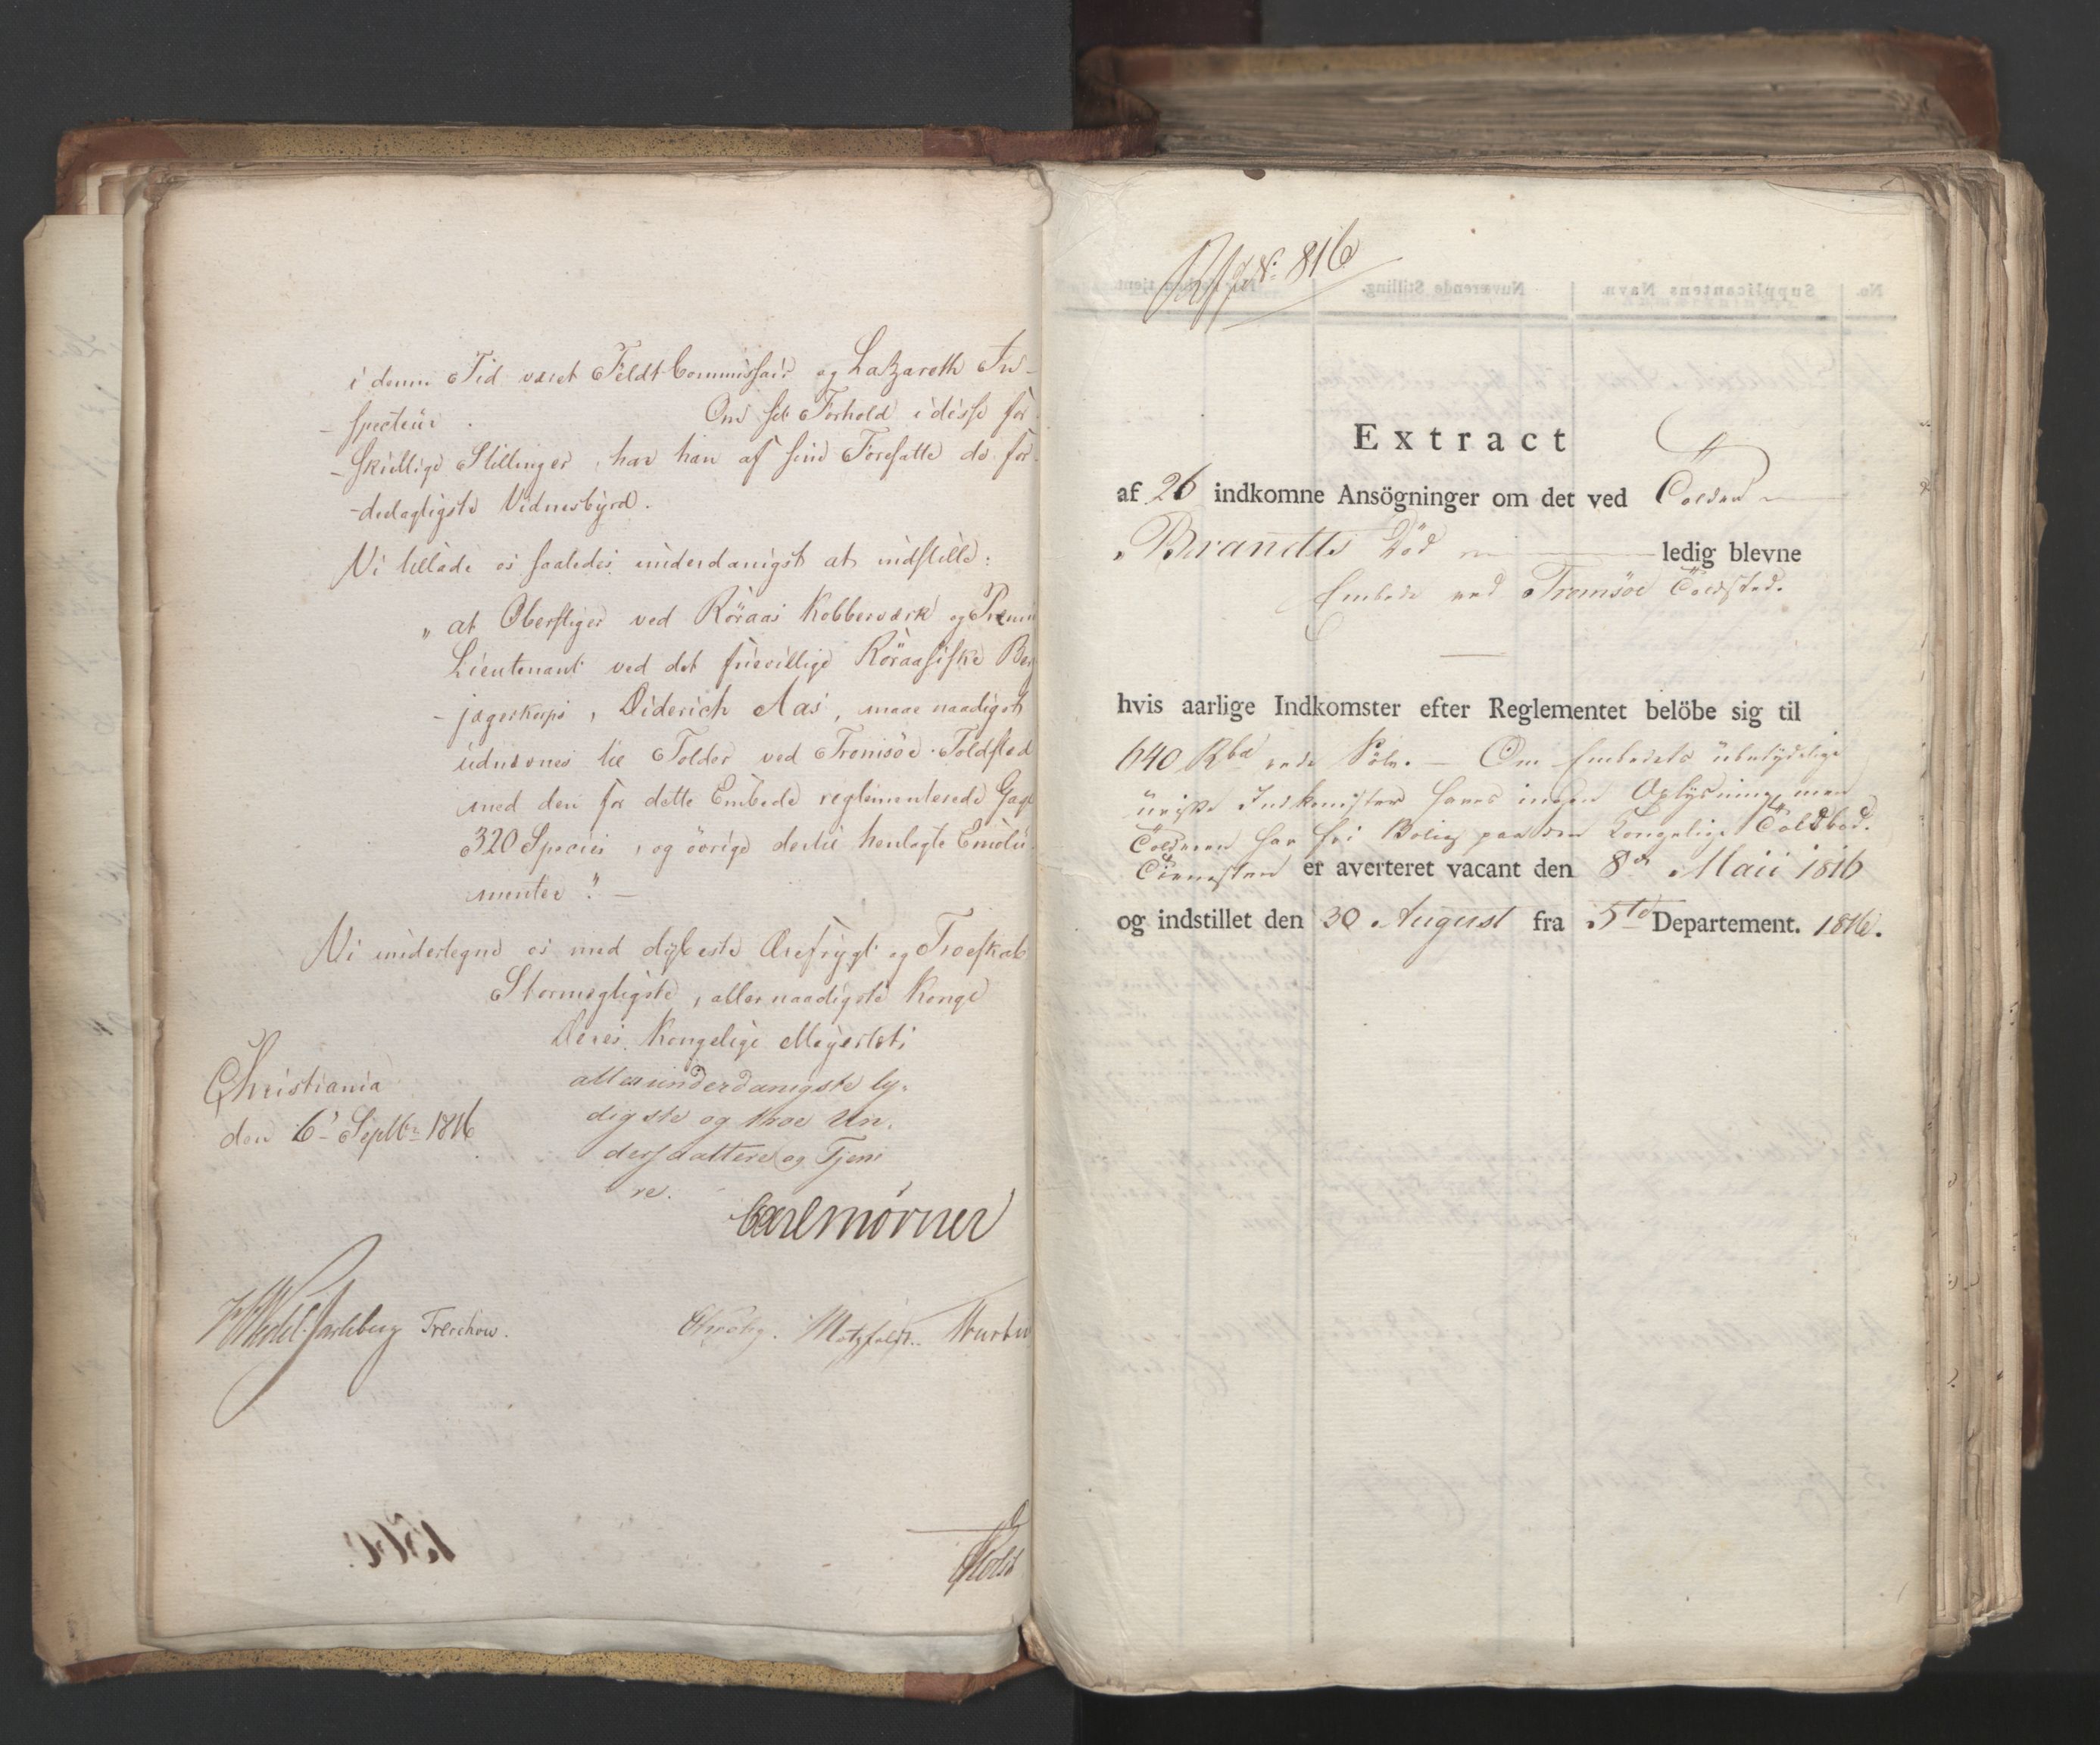 i denne Tid været Feldt-Commissair og Lazareth In-
-specteur. Om sit Forhold i disse for-
-skiellige Stillinger, har han af sine Foresatte de for-
-deelagtigste Vidnesbyrd.
Vi tillade os saaledes underdanigst at indstille:
"at Oberstiger ved Röraas Kobberværk og Premi
Lieutenant ved det frievillige Röraasiske Berg
-jægerkorps, Diderich Aas, maae naadigst
udnævnes til Tolder ved Tromsöe Toldsted
med den for dette Embede reglementerede Gage
320 Species, og övrige dertil henlagte Emolu
menter". —
Vi undertegne os med dybeste Ærefrygt og Troeskab
Stormægtigste, allernaadigste Konge
Deres Kongelige Majestæts
allerunderdanigste ly-
digste og troe Un-
dersaattere og Tjene
re.
Christiania
den 6' Septbr 1816
Carl Mörner
Wedel Jarlsberg Treschow.
Krohg. Motzfeldt.
Holst
No. 816
Extract
af 26 indkomne Ansögninger om det ved Tolder
Brandts Död ledig blevne
Embede ved Tromsöe Toldsted.
hvis aarlige Indkomster efter Reglementet belöbe sig til
640 Rbd rede Sölv. — Om Embedets ubetydelige
uvisse Indkomster haves ingen Oplysning, men
Tolderen har fri Bolig paa den Kongelige Toldbod.
Tienesten er averteret vacant den 8de Maii 1816
og indstillet den 30 August fra 5te Departement. 1816.